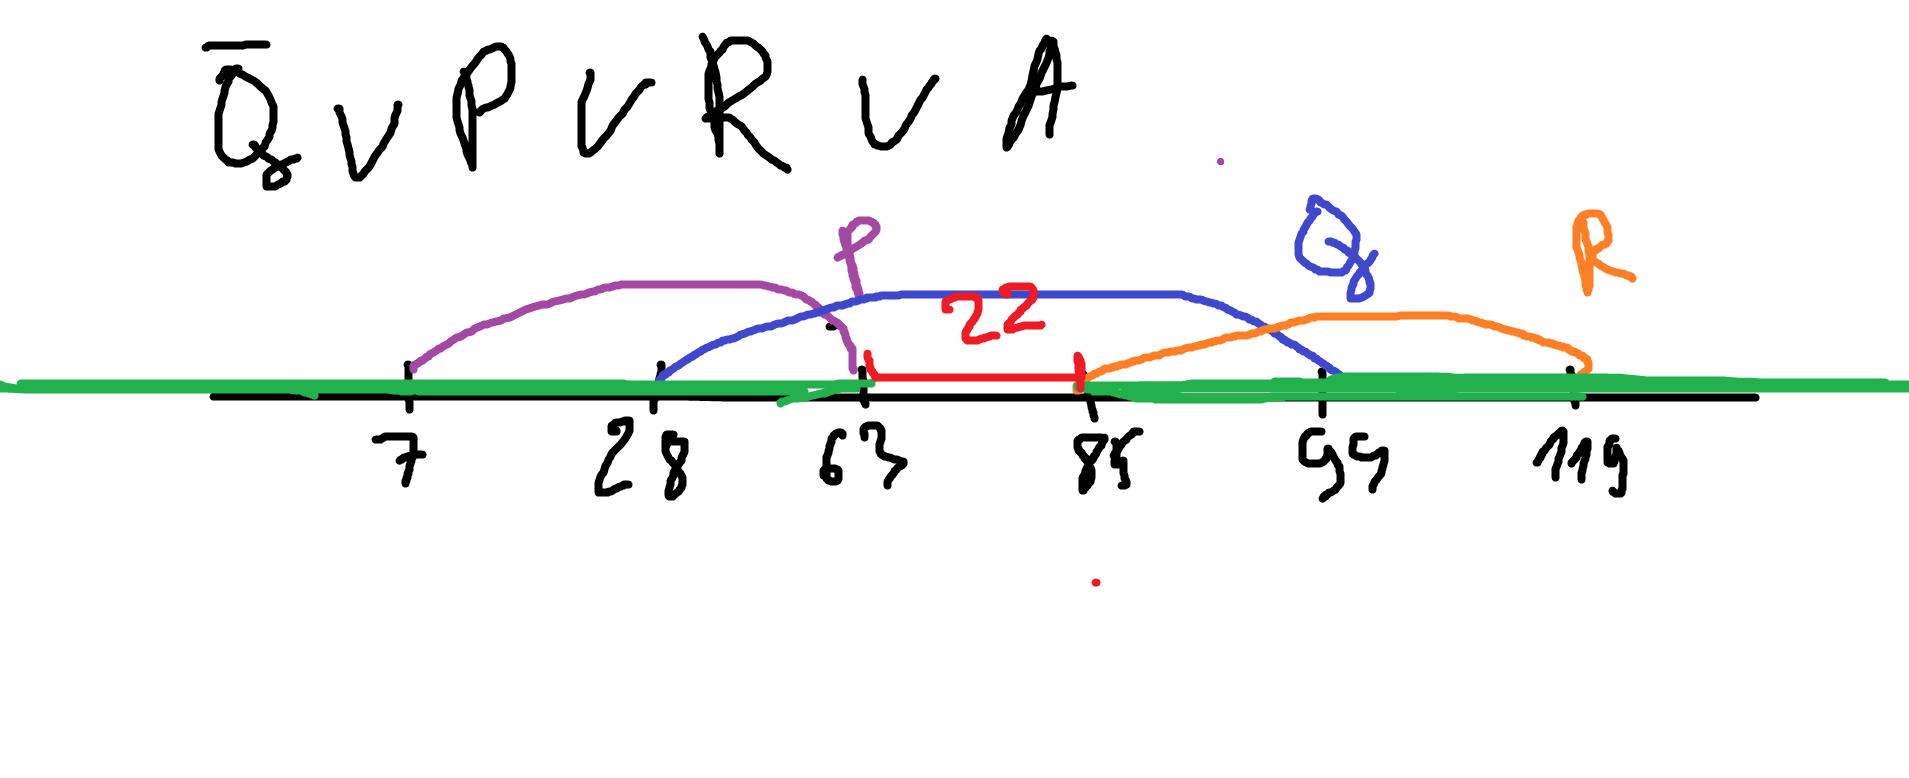 Q̅ ∨ P ∨ R ∨ A
P Q R
22
7 28 63 85 95 119